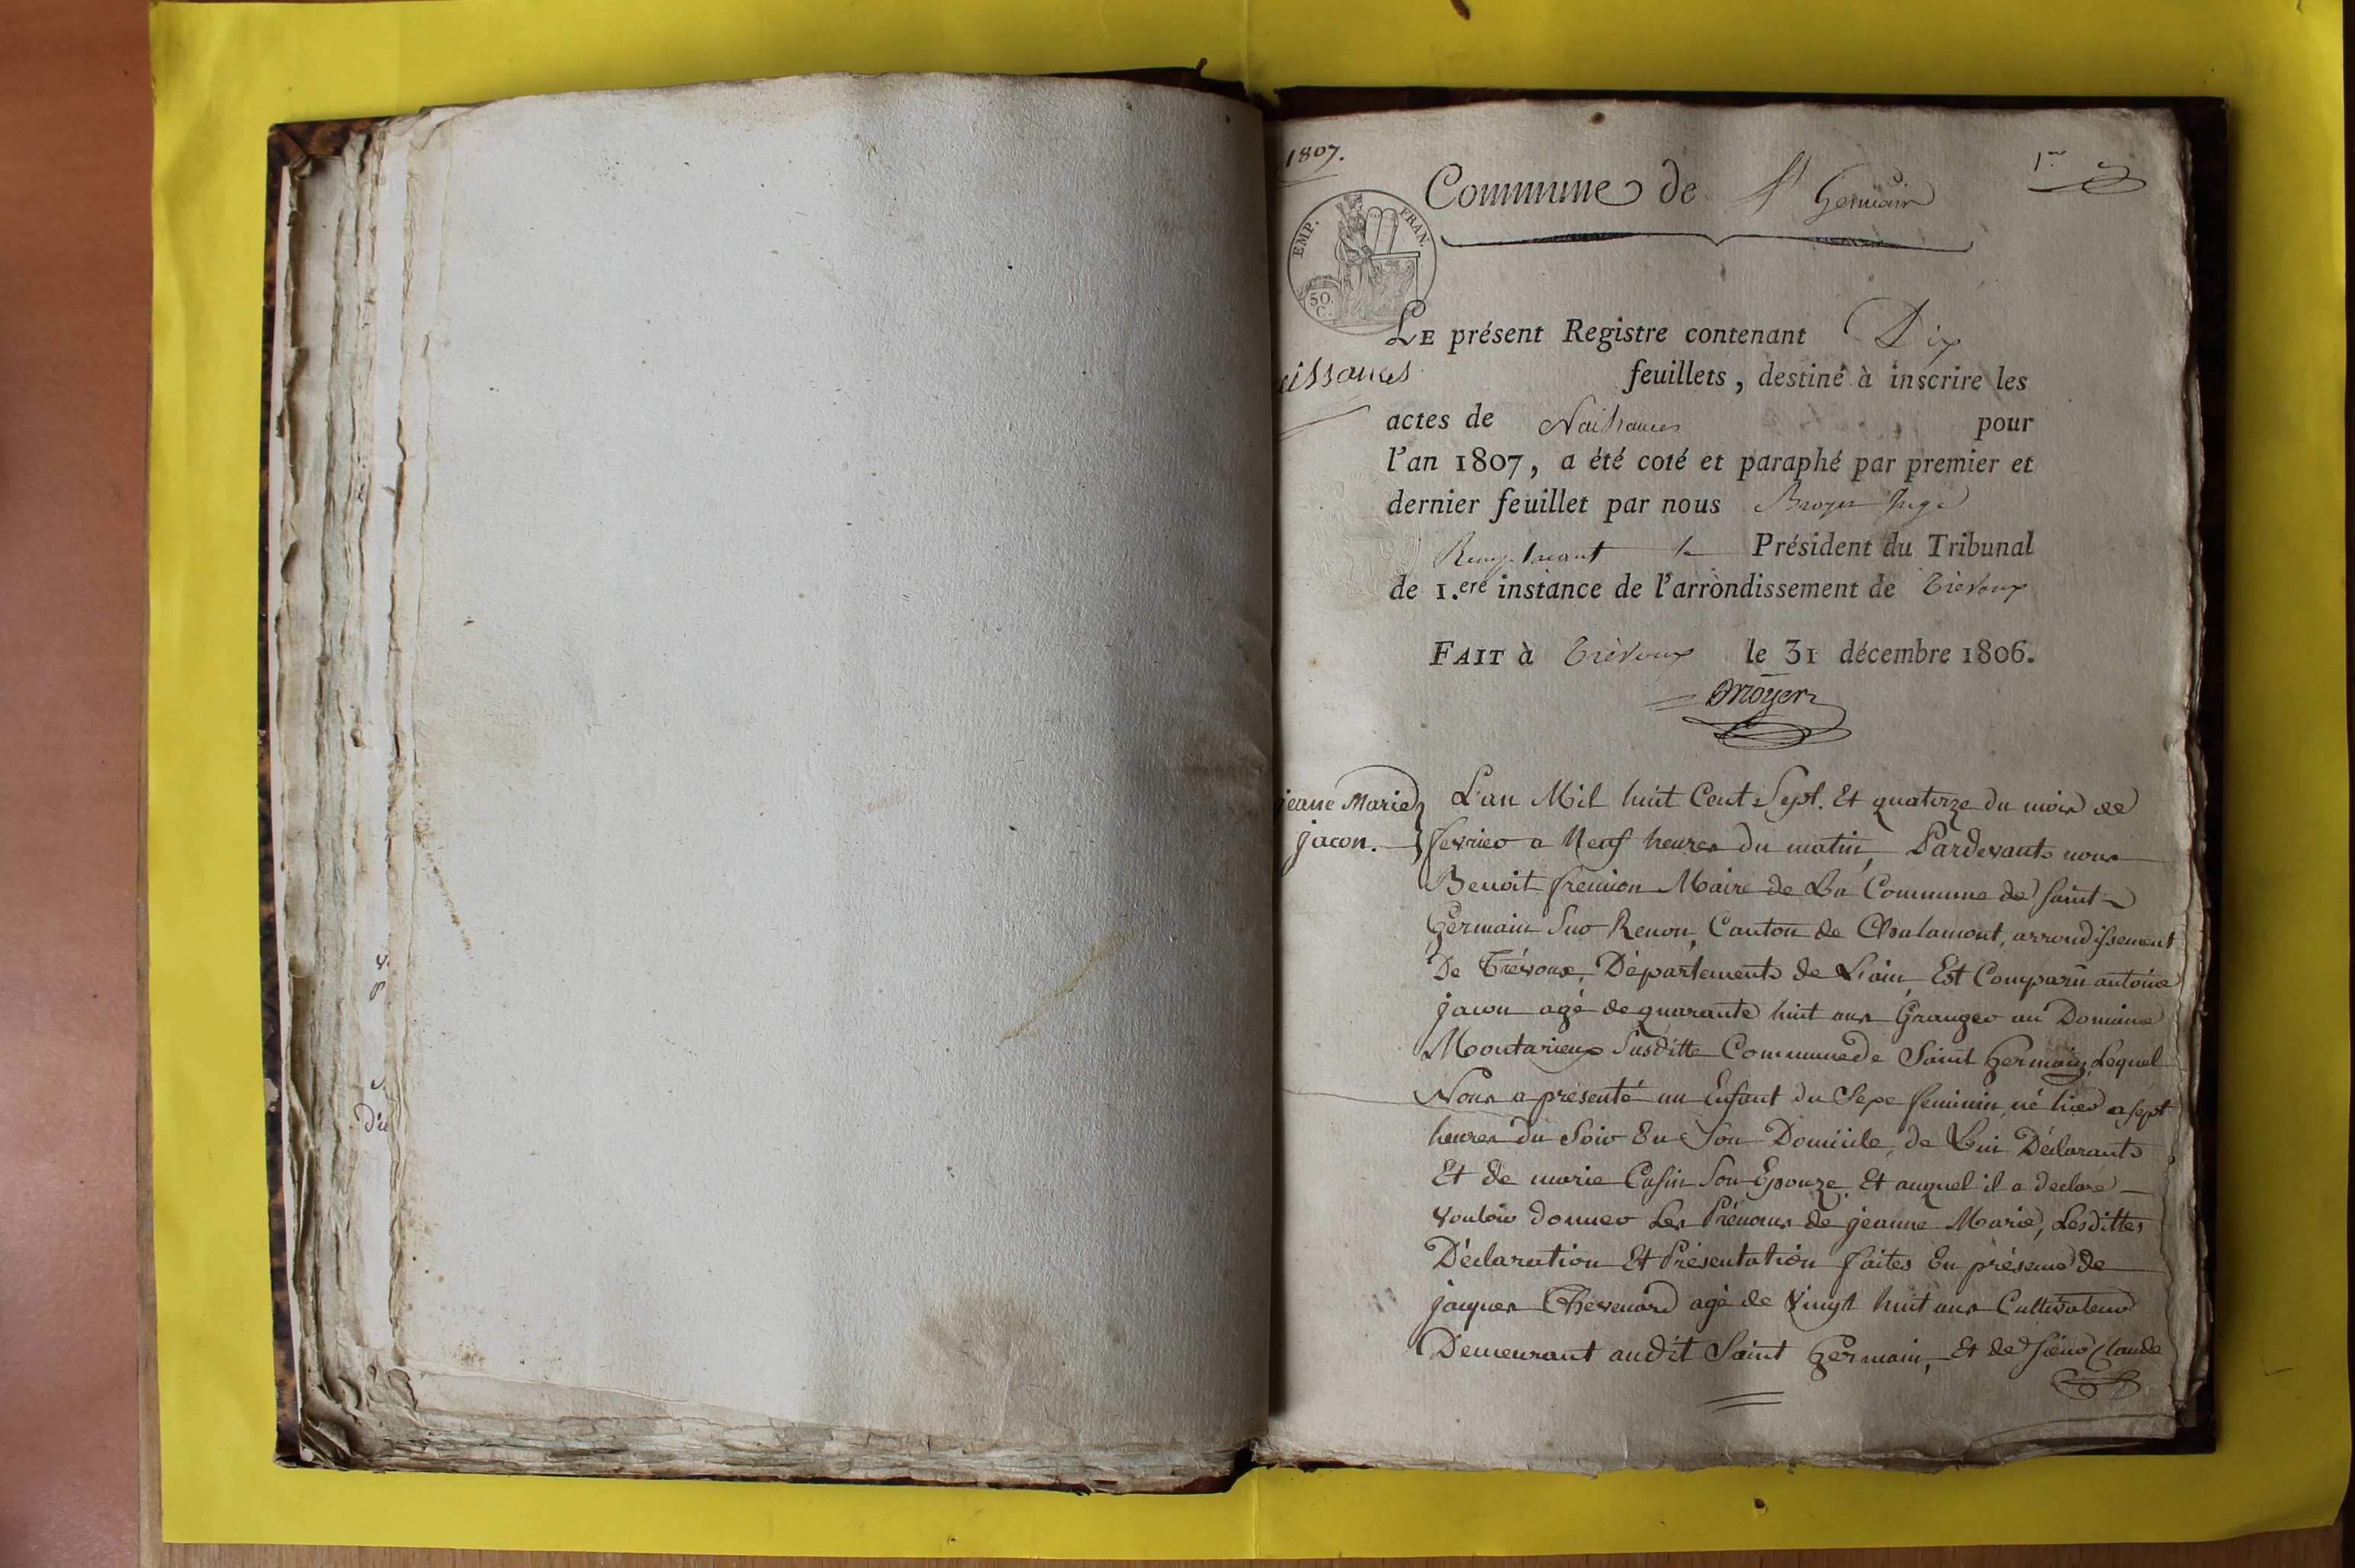 1807.
1er
Commune de St Germain
EMP. FRAN.
50
C.
LE présent Registre contenant Dix
feuillets, destiné à inscrire les
issances
actes de Naissances pour
l'an 1807, a été coté et paraphé par premier et
dernier feuillet par nous Broyer Juge
Remplacant le Président du Tribunal
de 1.ere instance de l'arrondissement de Trévoux
FAIT à Trévoux le 31 décembre 1806.
Broyer
jeane Marie
jacon.
L'an Mil huit Cent Sept. Et quatorze du mois de
fevrier a Neuf heures du matin, Pardevant nous
Benoit fremion Maire de La Commune de Saint
Germain Sur Renon, Canton de Chalamont, arrondissement
De Trévoux, Département de L'ain, Est Comparû antoine
jacon agé de quarante huit ans Granger au Domaine
Montarieux Susditte Commune de Saint Germain, Lequel
Nous a présenté un Enfant du Sexe feminin, né hier a sept
heures du Soir En Son Domicile, de Lui Déclarant
Et de marie Casin Son Epouze, Et auquel il a declaré
vouloir donner Les Prénoms de jeanne Marie, Lesdittes
Déclaration Et Présentation faites En présence de
jacques Thevenard agé de Vingt huit ans Cultivateur
Demeurant audit Saint Germain, Et de Sieur Claude